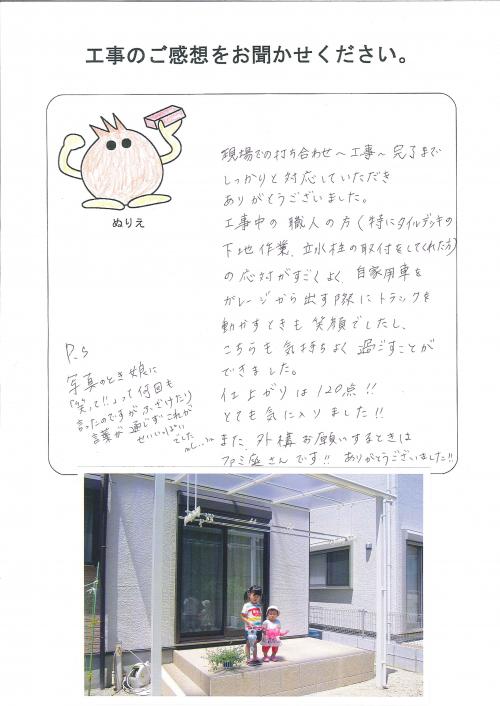 工事のご感想をお聞かせください。
ぬりえ
現場での打ち合わせ〜工事〜完了まで
しっかりと対応していただき
ありがとうございました。
工事中の職人の方(特にタイルデッキの
下地作業、立水栓の取付をしてくれた方)
の応対がすごくよく、自家用車を
ガレージから出す際にトラックを
動かすときも笑顔でしたし、
こちらも気持ちよく過ごすことが
できました。
仕上がりは120点!!
とても気に入りました!!
また、外構お願いするときは
ファミ庭さんです!! ありがとうございました!!
P.S
写真のとき娘に
「笑って!!」って何回も
言ったのですがふざけたり
言葉が通じず、これが
せいいっぱい
でした